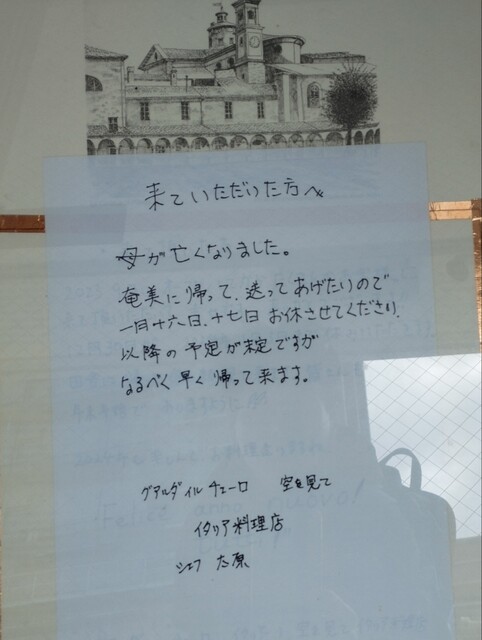 来ていただいた方へ
母が亡くなりました。
奄美に帰って、送ってあげたいので
一月十六日、十七日 お休させてください、
以降の予定が未定ですが
なるべく早く帰って来ます。
グアルダ イル チェーロ 空を見て
イタリア料理店
シェフ 大原
Felice anno nuovo!